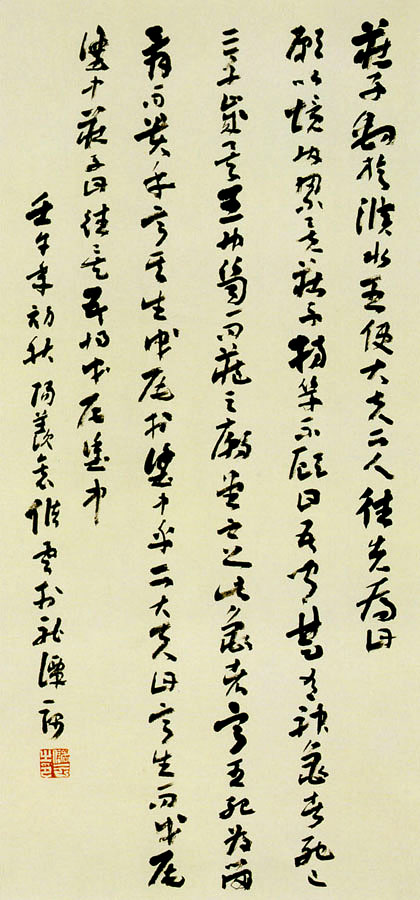 莊子釣於濮水王使大夫二人往先焉曰
願以境內累矣莊子持竿不顧曰吾聞楚有神龜者死已
三千歲矣王巾笥而藏之廟堂之上此龜者寧其死為留
骨而貴乎寧其生曳尾於塗中乎二大夫曰寧生而曳尾
塗中莊子曰往矣吾將曳尾塗中
壬午年初秋陽羨雲於龍潭一隅